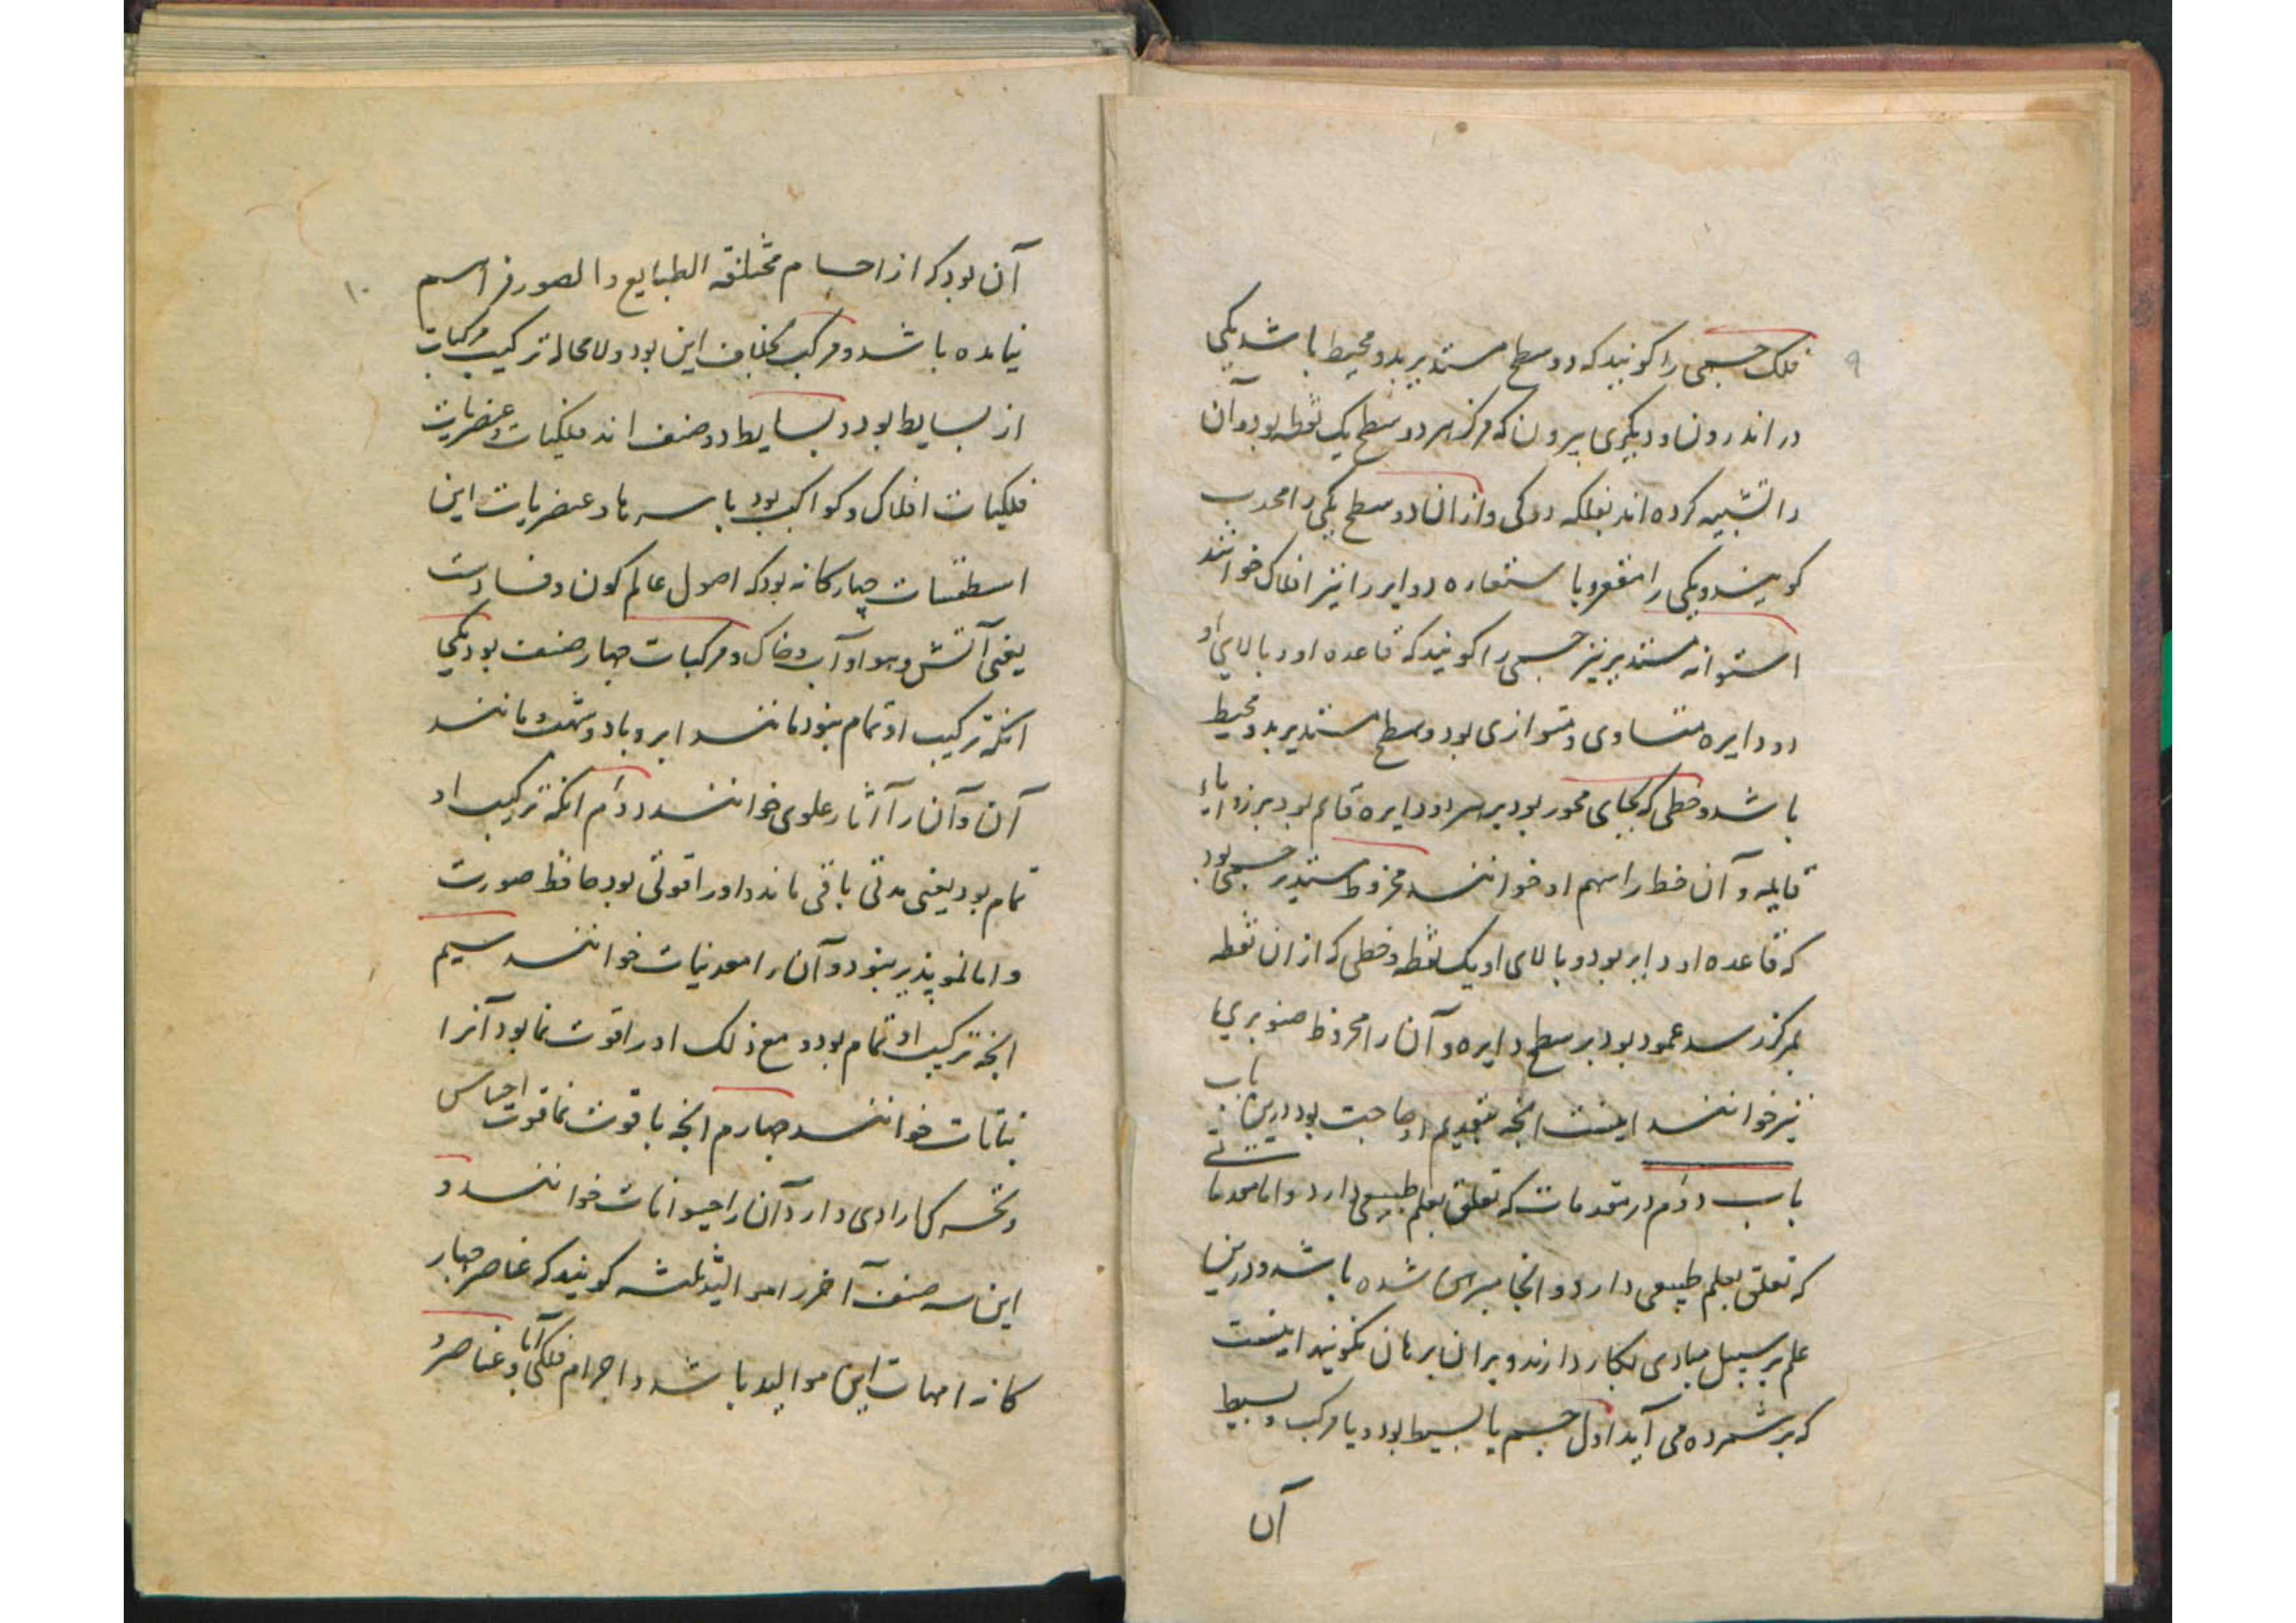 ۹
فلک جسمی را کویند که دو سطح مستدیر بدو محیط باشد یکی
در اندرون و دیکری بیرون که مرکز هر دو سطح یک نقطه بود و آن
را تشبیه کرده اند بفلکه دوکی و از ان دو سطح یکی را محدب
کویند و یکی را مقعر و باستعاره دوایر را نیز افلاک خوانند
استوانه مستدیر نیز جسمی را کویند که قاعده او و بالای او
دو دایره متساوی و متوازی بود و سطح مستدیر بدو محیط
باشد و خطی که بجای محور بود بر هر دو دایره قایم بود بر زوایاء
قایمه و آن خط را سهم او خوانند مخروط مستدیر جسمی بود
که قاعده او دایره بود و بالای او یک نقطه و خطی که از ان نقطه
بمرکز رسد عمود بود بر سطح دایره و آن را مخروط صنوبری
نیز خوانند اینست انچه بتقدیم او حاجت بود درین باب
باب دوم در مقدمات که تعلق بعلم طبیعی دارد و اما مقدماتی
که تعلق بعلم طبیعی دارد و انجا مبرهن شده باشد و درین
علم بر سبیل مبادی بکار دارند و بر ان برهان نکویند اینست
که بر شمرده می آید اول جسم یا بسیط بود و یا مرکب و بسیط
آن
۱۰
آن بود که از اجسام مختلفه الطبایع و الصور فراهم
نیامده باشد و مرکب بخلاف این بود و لا محاله ترکیب مرکبات
از بسایط بود و بسایط دو صنف اند فلکیات و عنصریات
فلکیات افلاک و کواکب بود باسرها و عنصریات این
اسطقسات چهارکانه بود که اصول عالم کون و فسادست
یعنی آتش و هوا و آب و خاک و مرکبات چهار صنف بود یکی
انکه ترکیب او تمام نبود مانند ابر و باد و شهب و مانند
آن و آن را آثار علوی خوانند دوم انکه ترکیب او
تمام بود یعنی مدتی باقی ماند و او را قوتی بود حافظ صورت
و اما نمو پذیر نبود و آن را معدنیات خوانند سیم
انچه ترکیب او تمام بود و مع ذلک او را قوت نما بود آنرا
نباتات خوانند چهارم انچه با قوت نما قوت احساس
و تحرک ارادی دارد و آن را حیوانات خوانند و
این سه صنف آخر را موالید ثلثه کویند که عناصر چهار
کانه امهات این موالید باشد و اجرام فلکی آبا و عناصر و